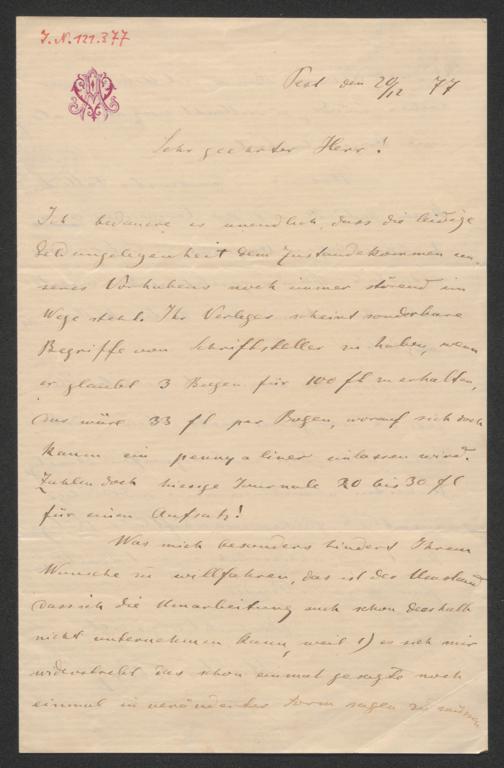 I.N. 121.377
Pest den 20/12 77
Sehr geehrter Herr!
Ich bedauere es unendlich, dass die leidige
Geldangelegenheit dem Zustandekommen un-
seres Vorhabens noch immer störend im
Wege steht. Ihr Verleger scheint sonderbare
Begriffe von Schriftsteller zu haben, wenn
er glaubt 3 Bogen für 100 fl zu erhalten,
das wäre 33 fl per Bogen, worauf sich doch
kaum ein penny a liner einlassen wird.
Zahlen doch hiesige Journale 20 bis 30 fl
für einen Aufsatz!
Was mich besonders hindert Ihrem
Wunsche zu willfahren, das ist der Umstand
dass ich die Umarbeitung auch schon deeshalb
nicht unternehmen kann, weil 1) es sich mir
widerstrebt das schon einmal gesagte noch
einmal in veränderter Form sagen zu müssen